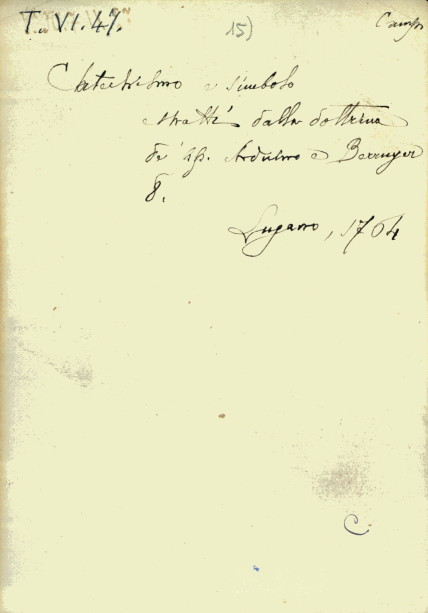 T. VI. 47.
15)
Catechismo e simbolo
estratti dalla dottrina
de' pp. Arduino e Berruyer
8.
Lugano, 1764
C